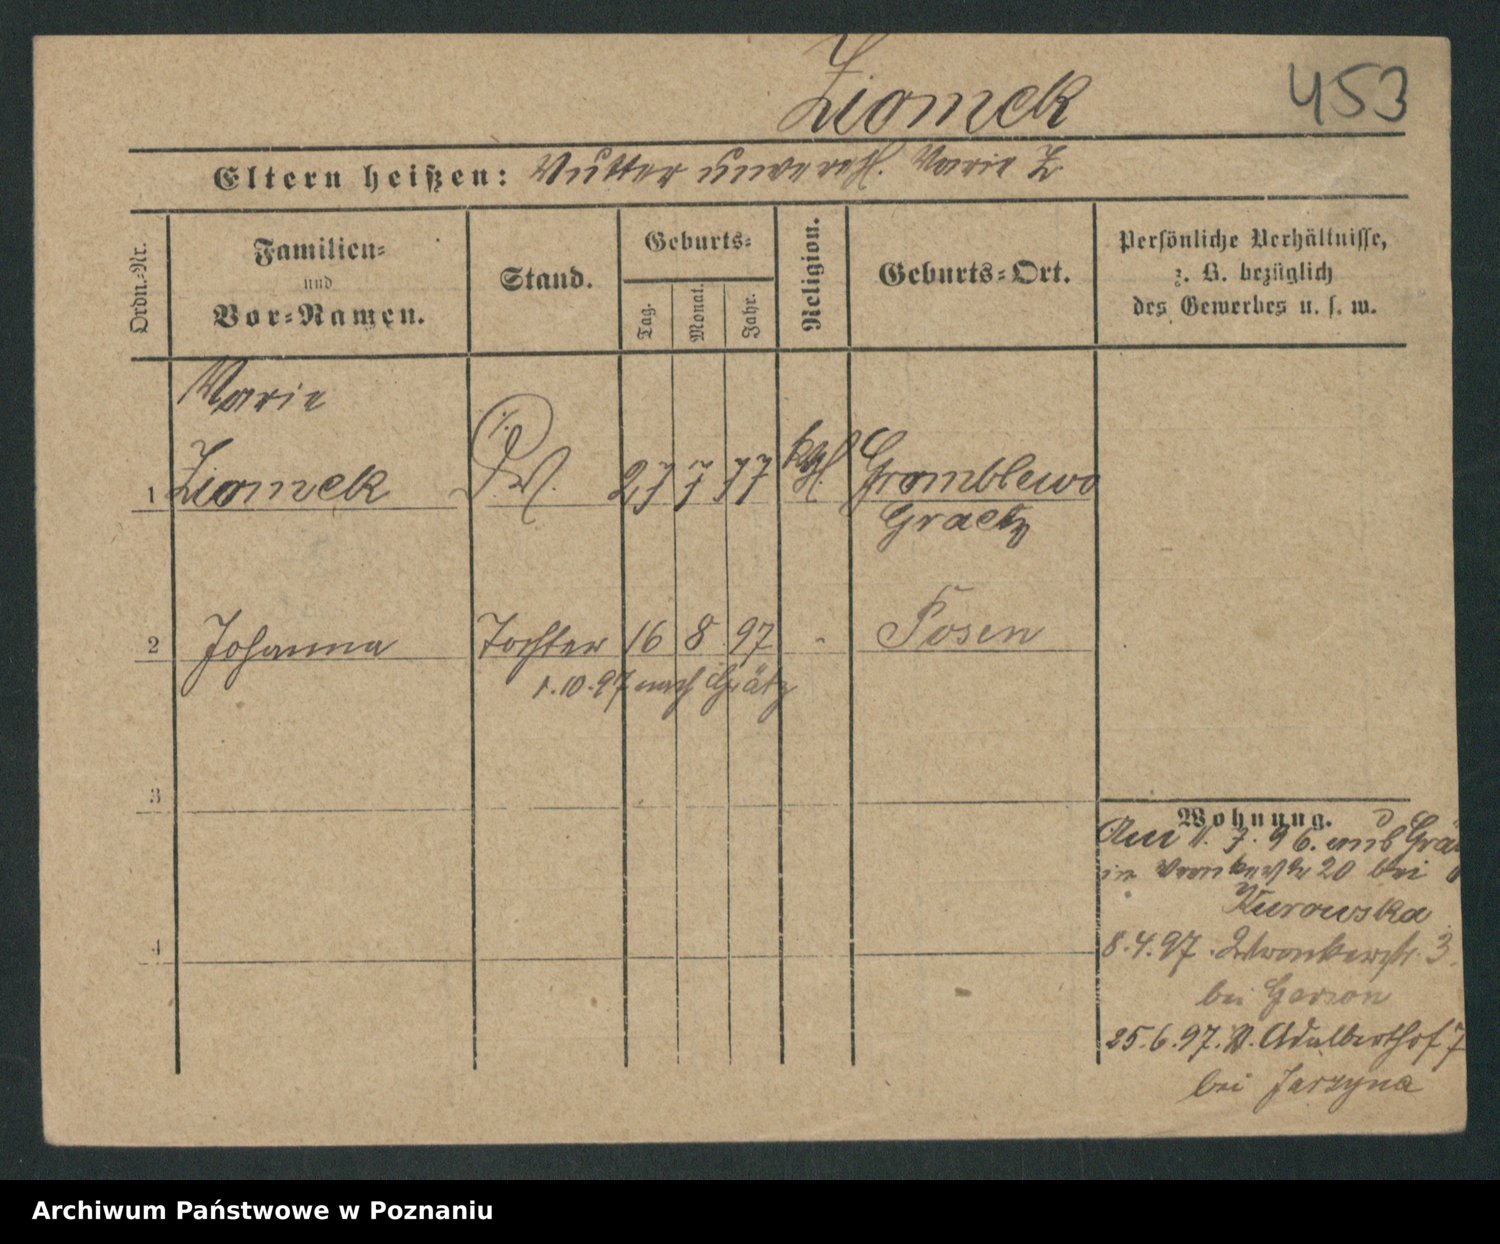 Ziomek
453
Eltern heißen: Mutter unvereh. Marie Z
Ordn.-Nr.
Familien-
und
Vor-Namen.
Stand.
Geburts-
Tag.
Monat.
Jahr.
Religion.
Geburts-Ort.
Persönliche Verhältnisse,
z. B. bezüglich
des Gewerbes u. s. w.
Marie
1 Ziomek 27 7 77 kath. Gromblewo
Graetz
2 Johanna Tochter 16 8 97 - Posen
1.10.97 nach Grätz
3
4
Wohnung.
Am 1.7.96. aus Grä
in 20 bei
Kurowska
8.4.97. Wronkerstr. 3.
bei
25.6.97. Adalberthof 7
bei Jarzyna
Archiwum Państwowe w Poznaniu